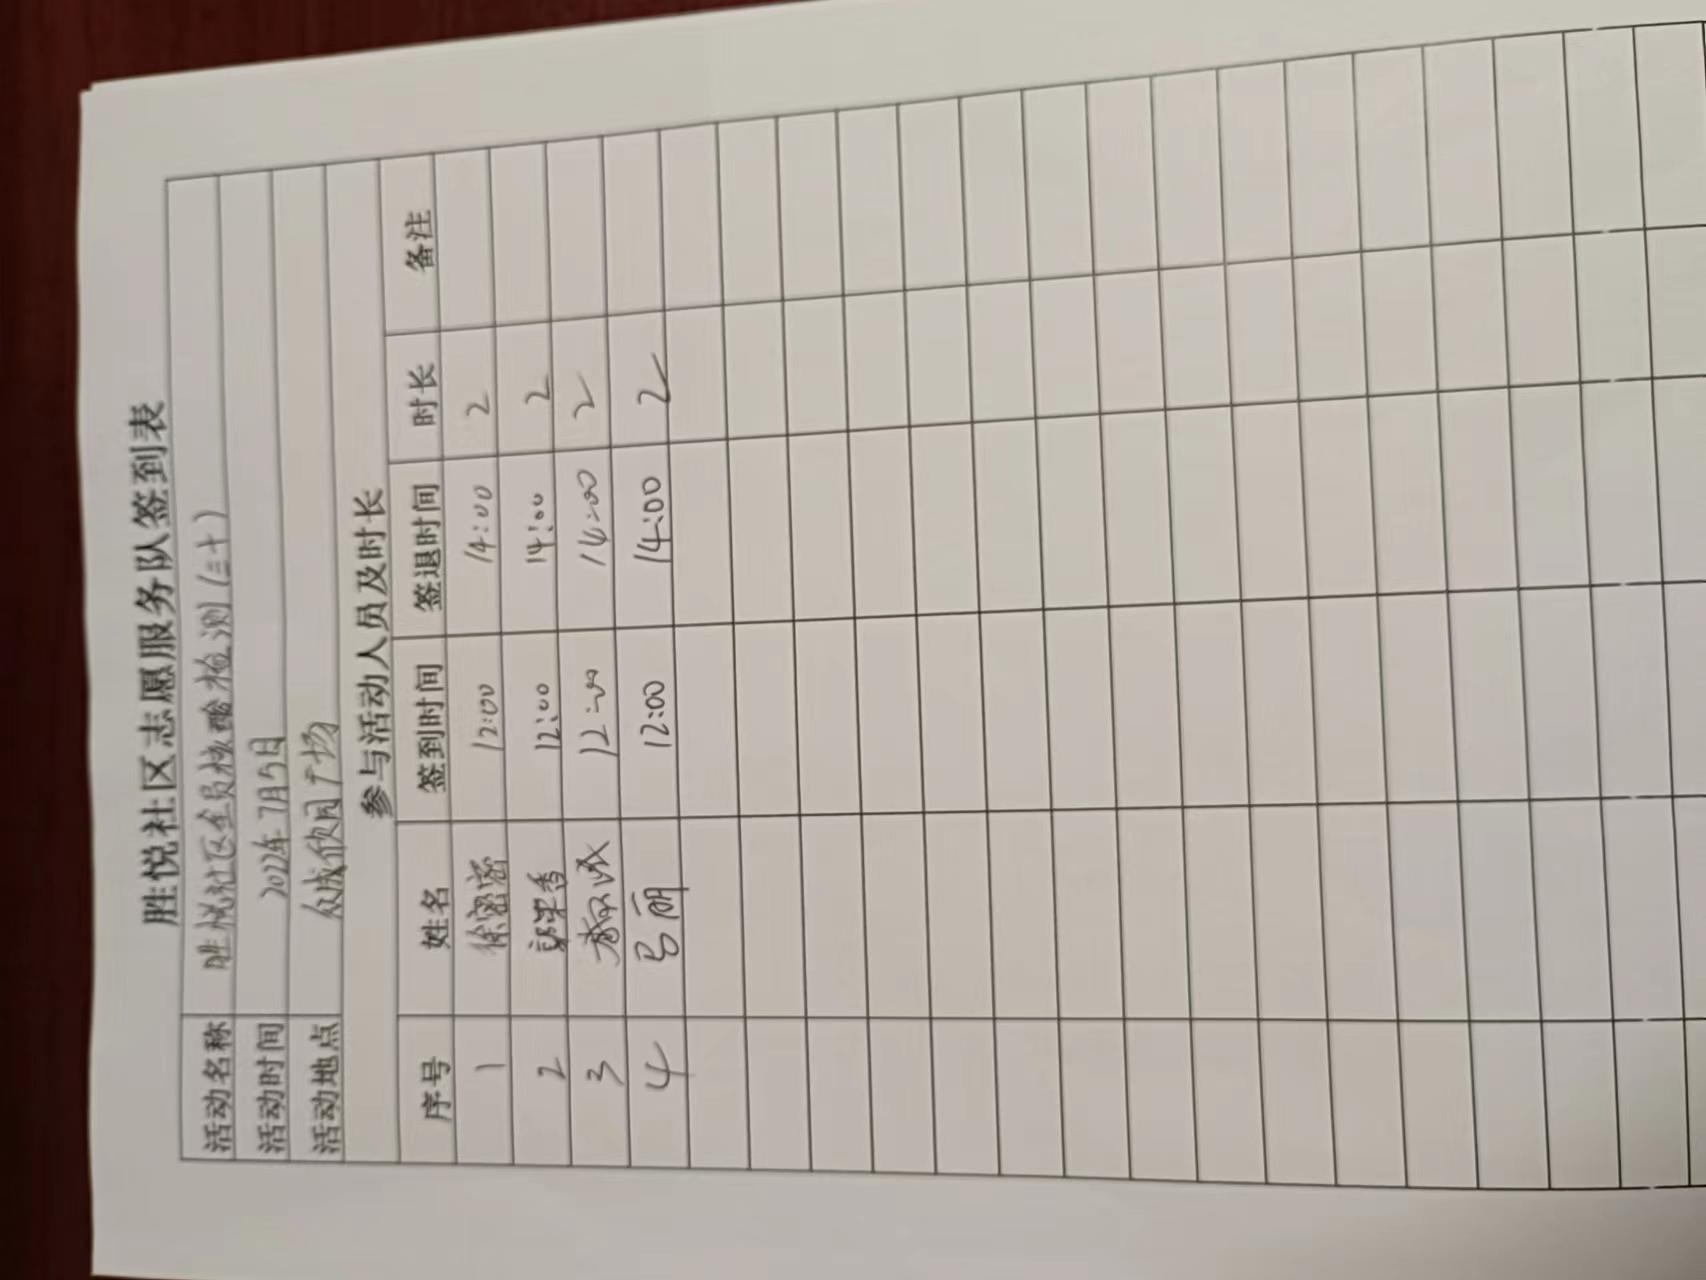 胜悦社区志愿服务队签到表
活动名称 胜悦社区全员核酸检测(三十)
活动时间 2022年7月5日
活动地点 众成欣园广场
参与活动人员及时长
序号 姓名 签到时间 签退时间 时长 备注
1 徐密密 12:00 14:00 2
2 郭翠香 12:00 14:00 2
3 12:00 14:00 2
4 马丽 12:00 14:00 2